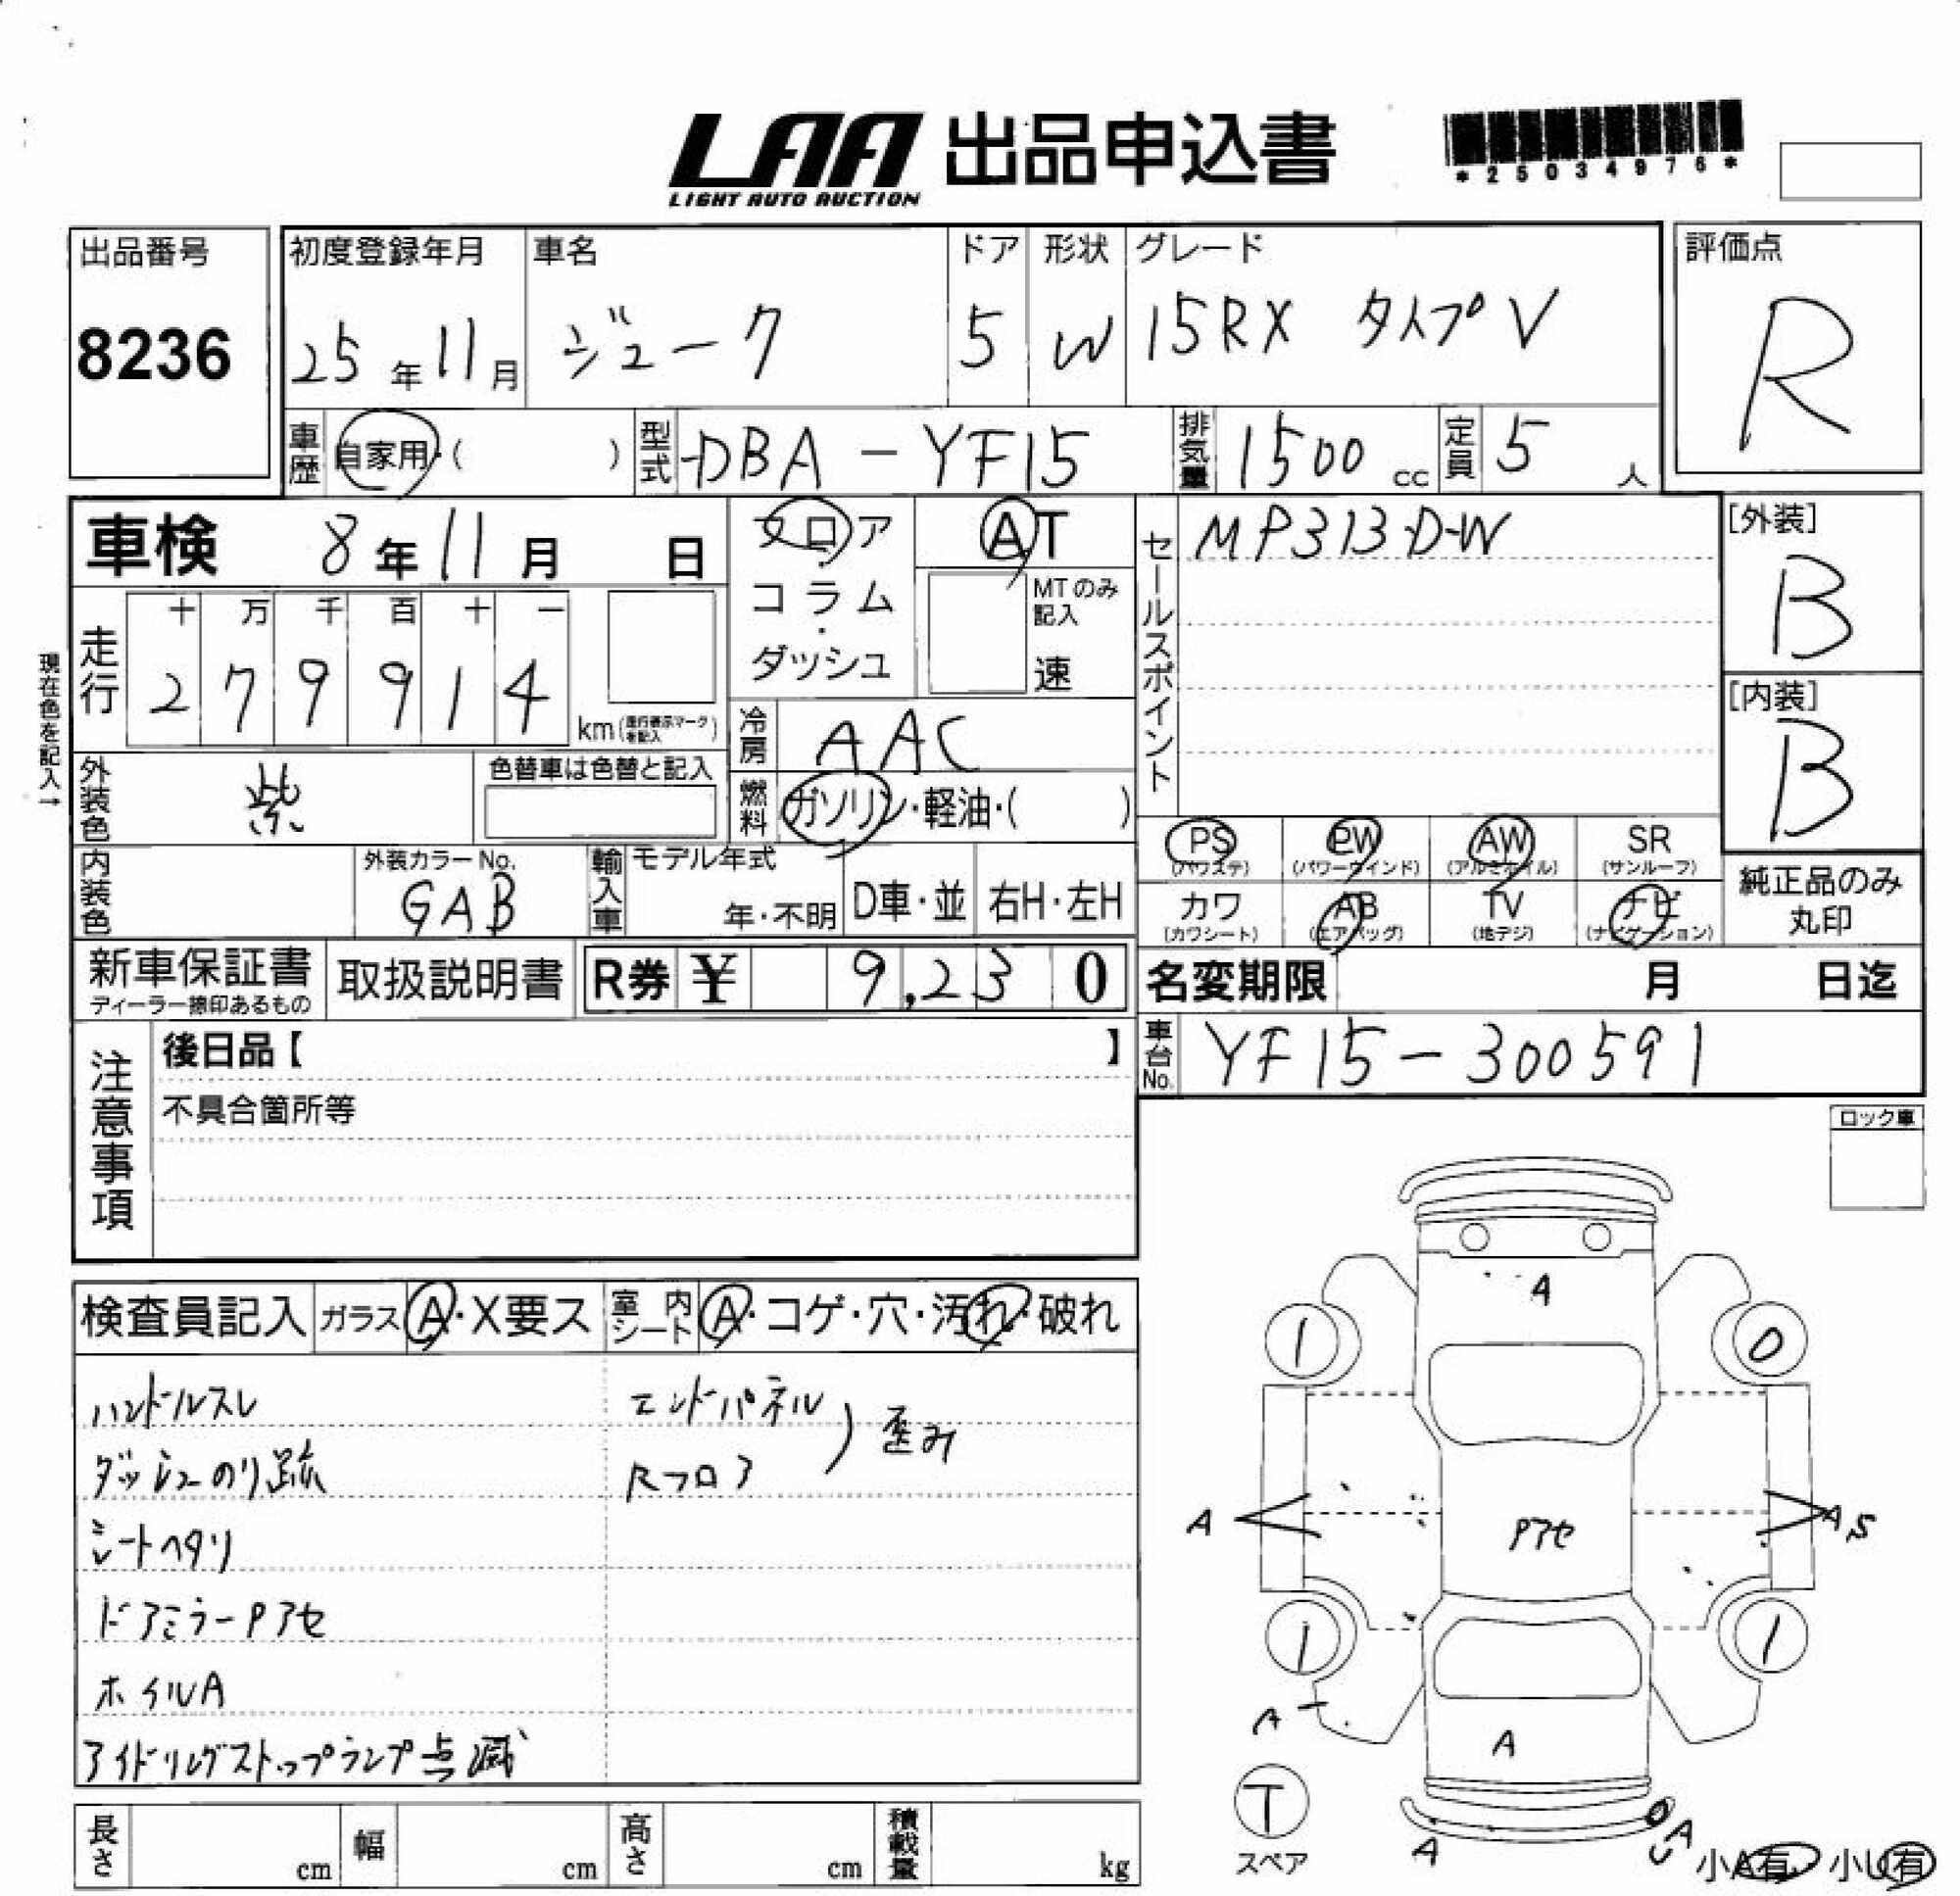 LAA 出品申込書
LIGHT AUTO AUCTION
*25034976*
出品番号
8236
初度登録年月
25年11月
車名
ジューク
ドア
5
形状
W
グレード
15RX タイプV
評価点
R
車歴 自家用・( )
型式 DBA-YF15
排気量 1500cc
定員 5人
車検 8年11月 日
フロア・コラム・ダッシュ
AT
MTのみ記入
速
セールスポイント
MP313D-W
[外装]
B
[内装]
B
現在色を記入→
走行
十 万 千 百 十 一
2 7 9 9 1 4
km(走行表示マークを記入)
冷房 AAC
外装色 紫
色替車は色替と記入
燃料 ガソリン・軽油・( )
内装色
外装カラーNo.
GAB
輸入車
モデル年式
年・不明
D車・並
右H・左H
PS
(パワステ)
PW
(パワーウインド)
AW
(アルミホイル)
SR
(サンルーフ)
カワ
(カワシート)
AB
(エアバッグ)
TV
(地デジ)
ナビ
(ナビゲーション)
純正品のみ
丸印
新車保証書
ディーラー捺印あるもの
取扱説明書
R券 ¥ 9,230
名変期限 月 日迄
車台No. YF15-300591
注意事項
後日品【 】
不具合箇所等
ロック車
検査員記入
ガラス A・X要ス
室内シート A・コゲ・穴・汚れ・破れ
ハンドルスレ
ダッシュのり跡
シートヘタリ
ドアミラーPアセ
ホイルA
アイドリングストップランプ点滅
エンドパネル
Rフロア
歪み
4
1
0
A
Pアセ
AS
1
1
A
A
T
スペア
A
AU
小A有 小U有
長さ cm
幅 cm
高さ cm
積載量 kg